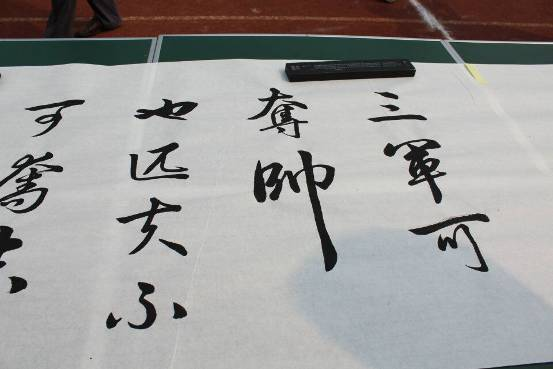 三軍可
奪帥
也匹夫不
可奪志